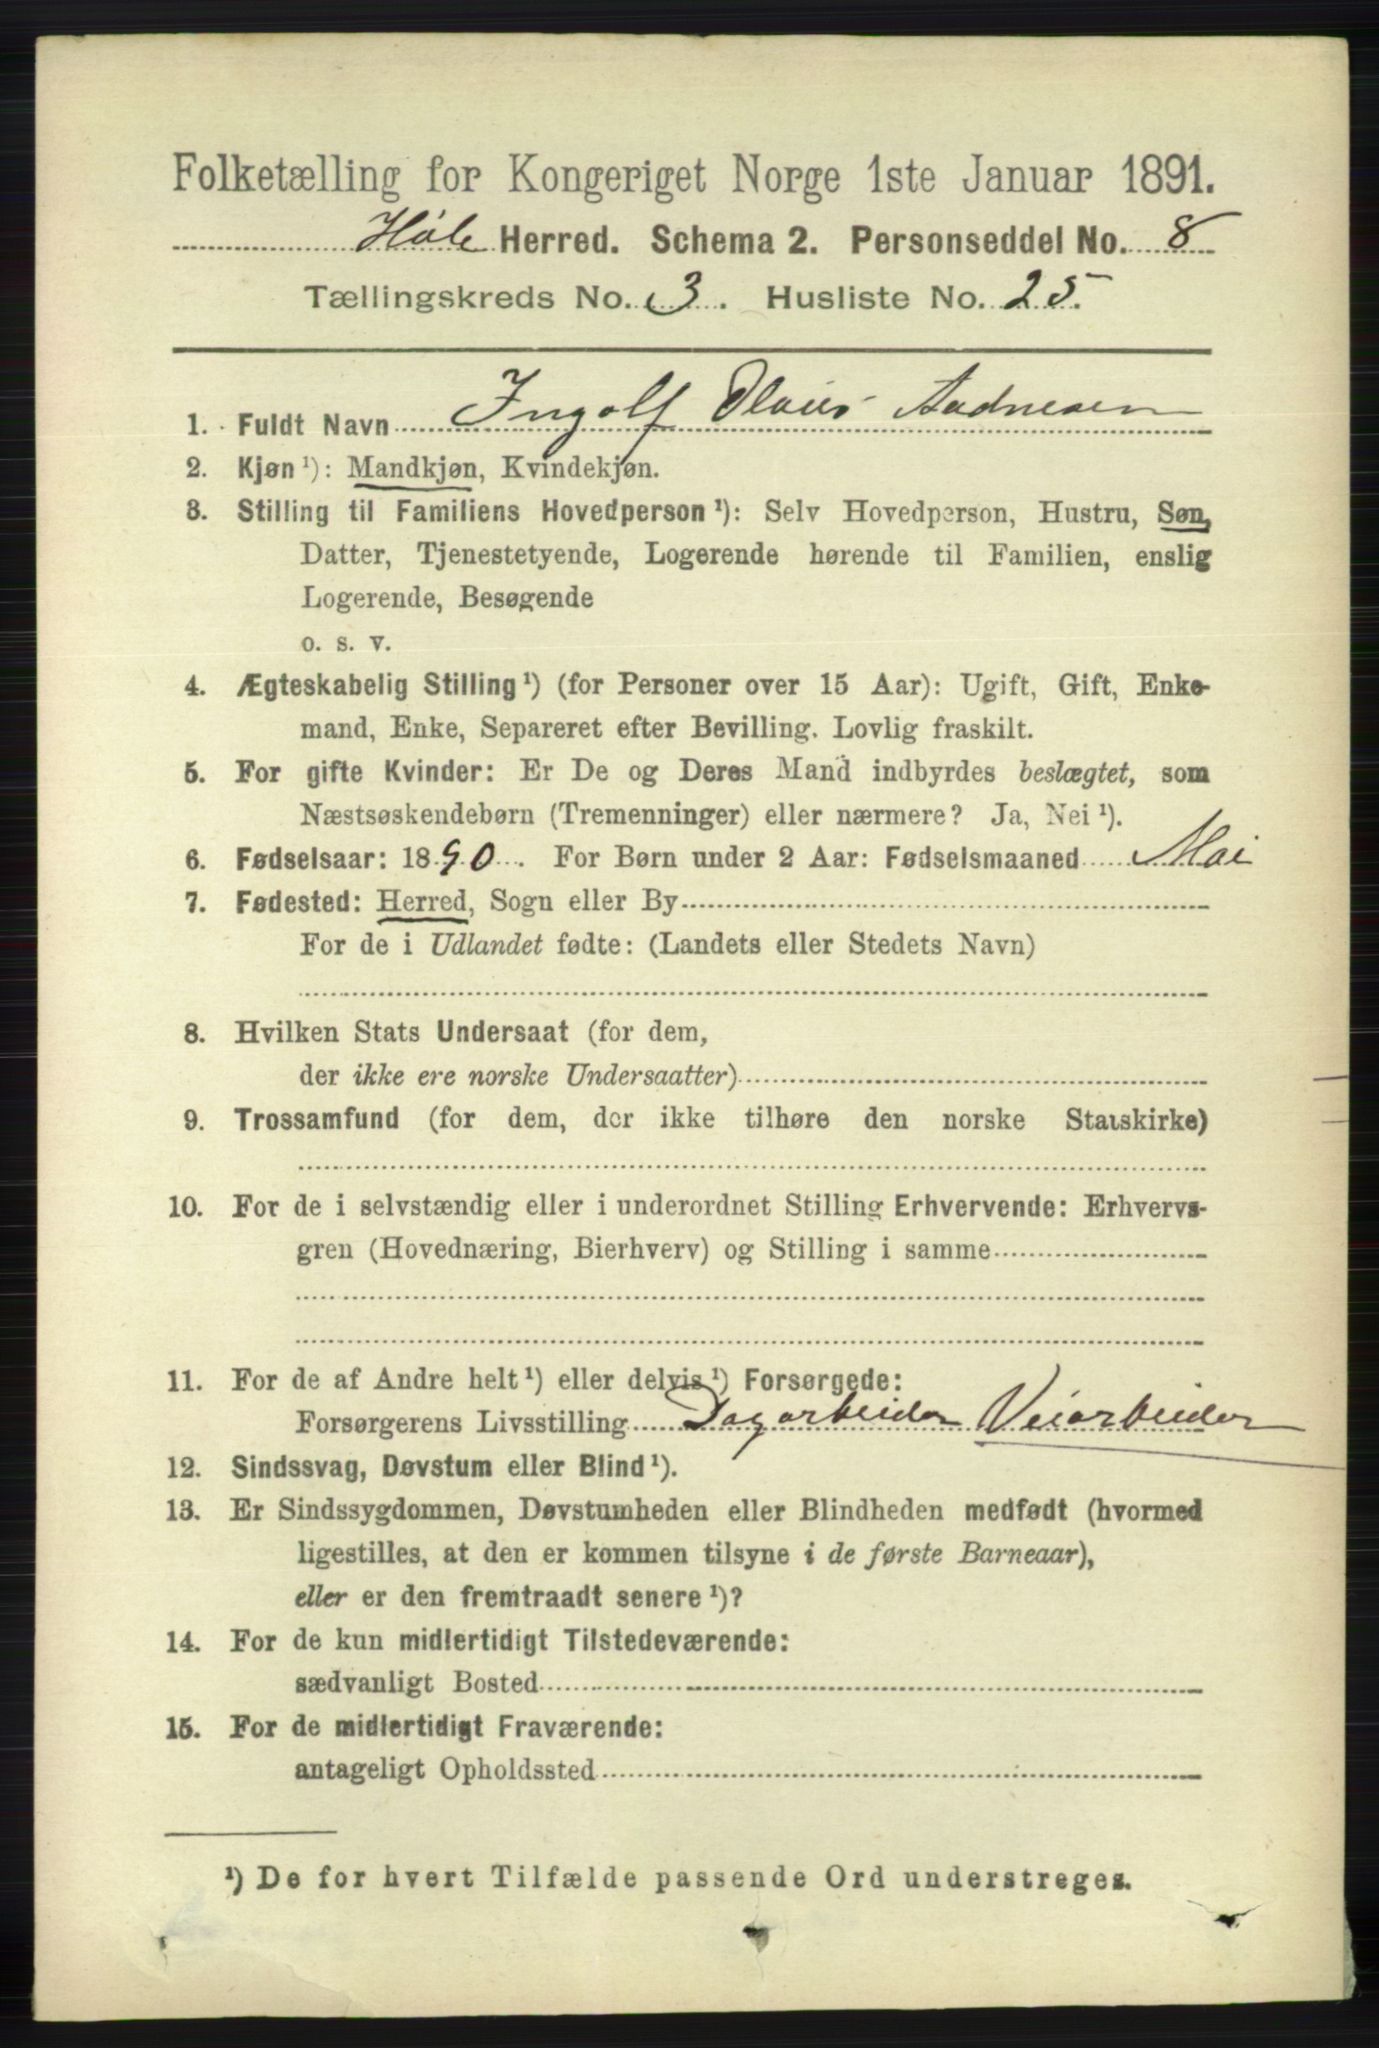 Folketælling for Kongeriget Norge 1ste Januar 1891.
Høle Herred. Schema 2. Personseddel No. 8
Tællingskreds No. 3. Husliste No. 25.
1. Fuldt Navn Ingolf Olaus Aadnesen
2. Kjøn ¹): Mandkjøn, Kvindekjøn.
3. Stilling til Familiens Hovedperson ¹): Selv Hovedperson, Hustru, Søn,
Datter, Tjenestetyende, Logerende hørende til Familien, enslig
Logerende, Besøgende
o. s. v.
4. Ægteskabelig Stilling ¹) (for Personer over 15 Aar): Ugift, Gift, Enke-
mand, Enke, Separeret efter Bevilling. Lovlig fraskilt.
5. For gifte Kvinder: Er De og Deres Mand indbyrdes beslægtet, som
Næstsøskendebørn (Tremenninger) eller nærmere? Ja, Nei ¹).
6. Fødselsaar: 1890. For Børn under 2 Aar: Fødselsmaaned Mai
7. Fødested: Herred, Sogn eller By
For de i Udlandet fødte: (Landets eller Stedets Navn)
8. Hvilken Stats Undersaat (for dem,
der ikke ere norske Undersaatter)
9. Trossamfund (for dem, der ikke tilhøre den norske Statskirke)
10. For de i selvstændig eller i underordnet Stilling Erhvervende: Erhvervs-
gren (Hovednæring, Bierhverv) og Stilling i samme
11. For de af Andre helt ¹) eller delvis ¹) Forsørgede:
Forsørgerens Livsstilling Dagarbeider Veiarbeider
12. Sindssvag, Døvstum eller Blind ¹).
13. Er Sindssygdommen, Døvstumheden eller Blindheden medfødt (hvormed
ligestilles, at den er kommen tilsyne i de første Barneaar),
eller er den fremtraadt senere ¹)?
14. For de kun midlertidigt Tilstedeværende:
sædvanligt Bosted
15. For de midlertidigt Fraværende:
antageligt Opholdssted
¹) De for hvert Tilfælde passende Ord understreges.